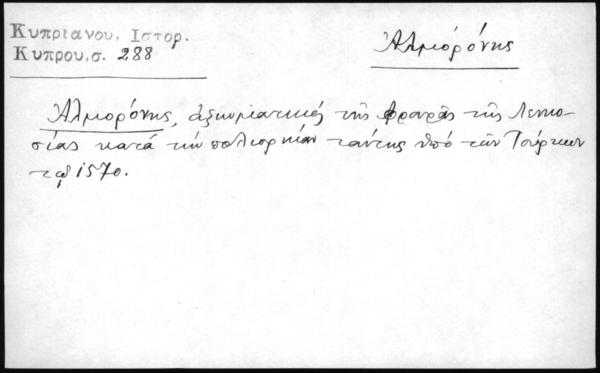 Κυπριανου, Ιστορ.
Κυπρου, σ. 288
Ἀλμορόνης
Ἀλμορόνης, ἀξιωματικός τῆς φρουρᾶς τῆς Λευκω-
σίας κατά τήν πολιορκίαν ταύτης ὑπό τῶν Τούρκων
τῷ 1570.